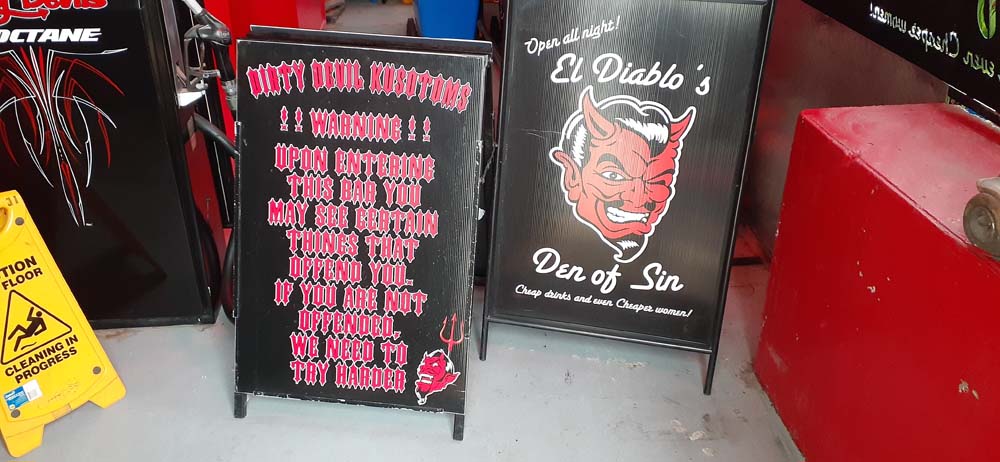 OCTANE
TION
FLOOR
CLEANING IN
PROGRESS
DIRTY DEVIL KUSOTOMS
!! WARNING !!
UPON ENTERING
THIS BAR YOU
MAY SEE CERTAIN
THINGS THAT
OFFEND YOU.
IF YOU ARE NOT
OFFENDED,
WE NEED TO
TRY HARDER
Open all night!
El Diablo's
Den of Sin
Cheap drinks and even Cheaper women!
even Cheaper women!